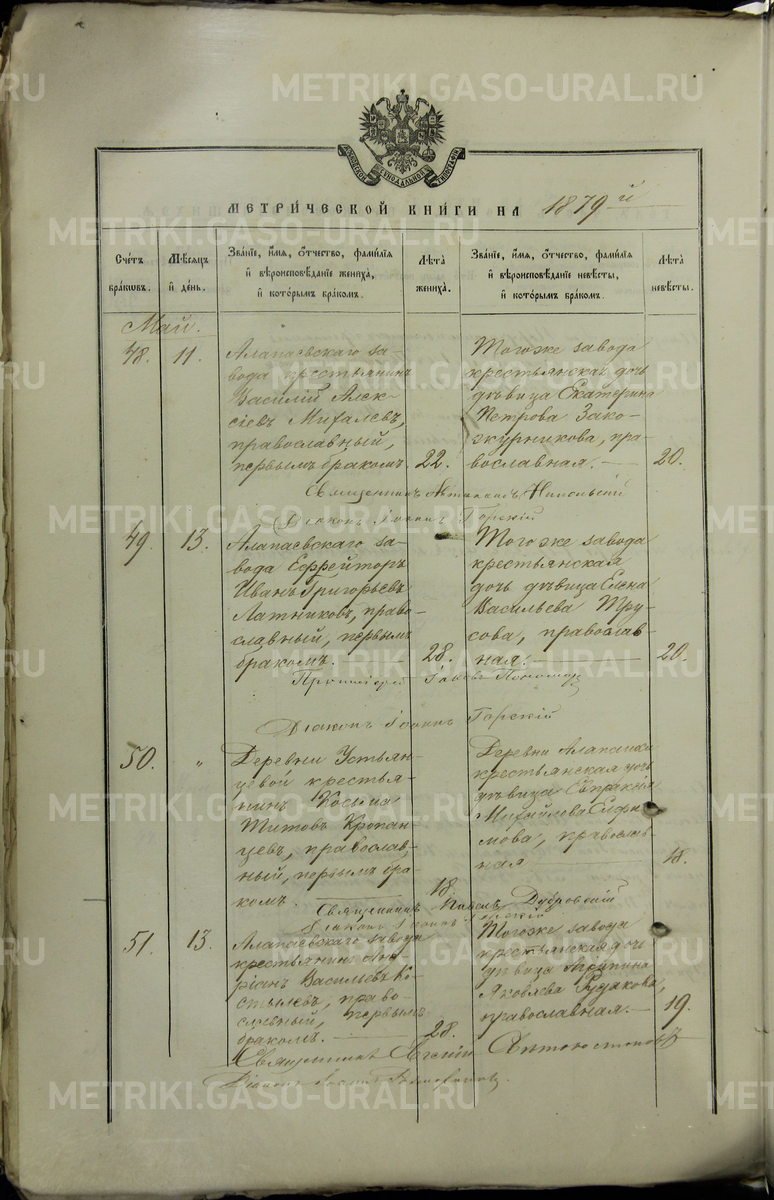 МОСКОВСКОЙ СѴНОДАЛЬНОЙ ТИПОГРАФІИ
МЕТРИ́ЧЕСКОЙ КНИ́ГИ НА 1879й
Сче́тъ бра́кѡвъ.
Мѣ́сѧцъ и҆ де́нь.
Зва́нїе, и҆́мѧ, ѻ҆́тчество, фамі́лїѧ и҆ вѣроисповѣ́данїе жениха̀, и҆ кото́рымъ бра́комъ.
Лѣ́та жениха̀.
Зва́нїе, и҆́мѧ, ѻ҆́тчество, фамі́лїѧ и҆ вѣроисповѣ́данїе невѣ́сты, и҆ кото́рымъ бра́комъ.
Лѣ́та невѣ́сты.
Май.
48. 11.
Алапаевскаго за-
вода крестьянинъ
Василій Алек-
сіевъ Михалевъ,
православный,
первымъ бракомъ. 22.
Тогоже завода
крестьянская дочь
дѣвица Екатерина
Петрова Зако-
журникова, пра-
вославная. 20.
Священникъ Никольскій
Діаконъ Іоаннъ Горскій
49. 13.
Алапаевскаго за-
вода Ефрейторъ
Иванъ Григорьевъ
Латниковъ, право-
славный, первымъ
бракомъ. 28.
Тогоже завода
крестьянская
дочь дѣвица Елена
Васильева Тру-
сова, православ-
ная. 20.
Протоіерей Іаковъ Пономарев
Діаконъ Іоаннъ Горскій
50. "
Деревни Устьян-
цевой крестья-
нинъ Косьма
Титовъ Кропан-
цевъ, православ-
ный, первымъ бра
комъ. 18.
Деревни Алапаихи
крестьянская дочь
дѣвица Евпраксія
Михайлова Ефи-
мова, православ-
ная 18.
Священникъ Павелъ Дубровскій
Діаконъ Іоаннъ Горскій
51. 13.
Алапаевскаго завода
крестьянинъ Анд
ріанъ Васильевъ Ко-
стылевъ, право-
славный, первымъ
бракомъ. 28.
Тогоже завода
крестьянская дочь
дѣвица Агрипина
Яковлева Рудакова,
православная. 19.
Священникъ Евгеній
Діаконъ Іоаннъ
METRIKI.GASO-URAL.RU